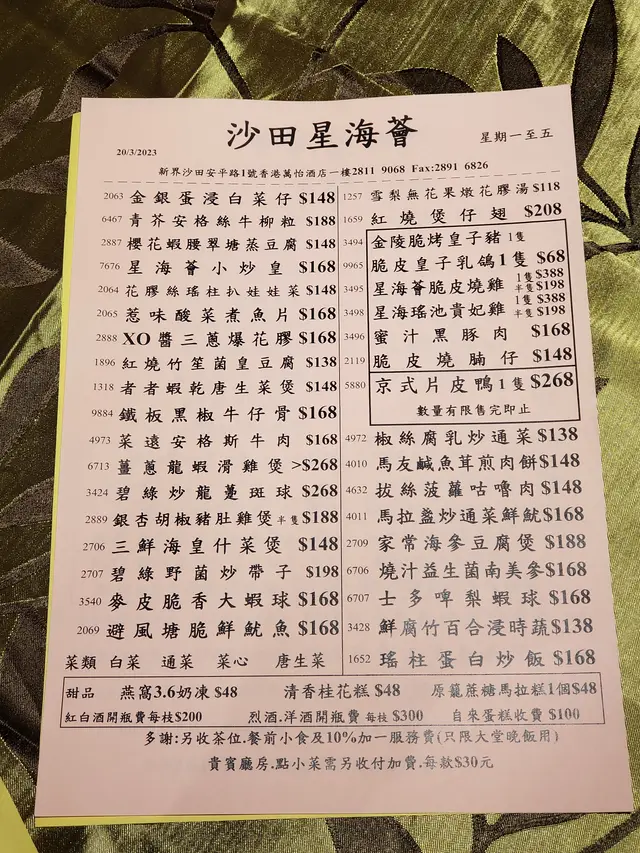 沙田星海薈
星期一至五
20/3/2023
新界沙田安平路1號香港萬怡酒店一樓2811 9068 Fax:2891 6826
2063 金銀蛋浸白菜仔 $148
6467 青芥安格絲牛柳粒 $188
2887 櫻花蝦腰翠塘蒸豆腐 $148
7676 星海薈小炒皇 $168
2064 花膠絲瑤柱扒娃娃菜 $148
2065 惹味酸菜煮魚片 $168
2888 XO醬三蔥爆花膠 $168
1896 紅燒竹笙菌皇豆腐 $138
1318 者者蝦乾唐生菜煲 $148
9884 鐵板黑椒牛仔骨 $168
4973 菜遠安格斯牛肉 $168
6713 薑蔥龍蝦滑雞煲 >$268
3424 碧綠炒龍躉斑球 $268
2889 銀杏胡椒豬肚雞煲 半隻 $188
2706 三鮮海皇什菜煲 $148
2707 碧綠野菌炒帶子 $198
3540 麥皮脆香大蝦球 $168
2069 避風塘脆鮮魷魚 $168
菜類 白菜 通菜 菜心 唐生菜
1257 雪梨無花果燉花膠湯 $118
1659 紅燒煲仔翅 $208
3494 金陵脆烤皇子豬 1隻
9965 脆皮皇子乳鴿 1隻 $68
3495 星海薈脆皮燒雞 1隻$388 半隻$198
3498 星海瑤池貴妃雞 1隻$388 半隻$198
3496 蜜汁黑豚肉 $168
2119 脆皮燒腩仔 $148
5880 京式片皮鴨 1隻 $268
數量有限售完即止
4972 椒絲腐乳炒通菜 $138
4010 馬友鹹魚茸煎肉餅 $148
4632 拔絲菠蘿咕嚕肉 $148
4011 馬拉盞炒通菜鮮魷 $168
2709 家常海參豆腐煲 $188
6706 燒汁益生菌南美參 $168
6707 士多啤梨蝦球 $168
3428 鮮腐竹百合浸時蔬 $138
1652 瑤柱蛋白炒飯 $168
甜品 燕窩3.6奶凍 $48 清香桂花糕 $48 原籠蔗糖馬拉糕1個$48
紅白酒開瓶費每枝$200 烈酒.洋酒開瓶費 每枝 $300 自來蛋糕收費 $100
多謝:另收茶位.餐前小食及10%加一服務費(只限大堂晚飯用)
貴賓廳房.點小菜需另收付加費.每款$30元